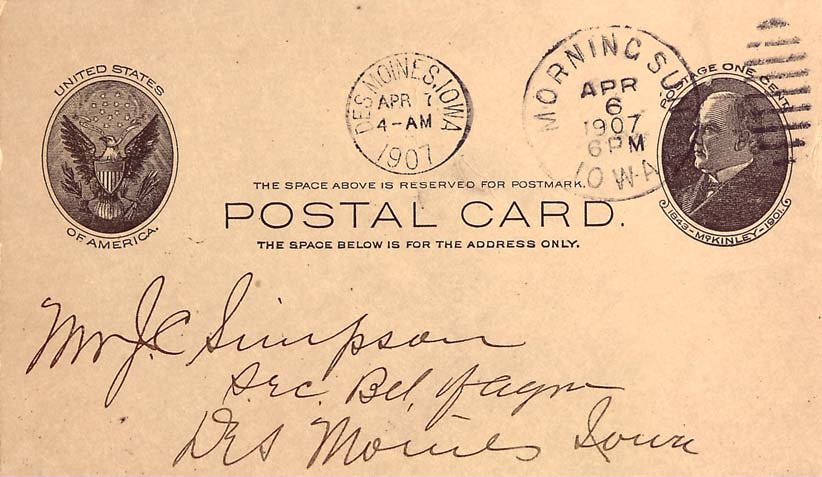 UNITED STATES
OF AMERICA.
DES MOINES, IOWA
APR 7
4-AM
1907
MORNING SU
APR
6
1907
6 PM
IOWA
POSTAGE ONE CENT
1843-McKINLEY-1901
THE SPACE ABOVE IS RESERVED FOR POSTMARK.
POSTAL CARD.
THE SPACE BELOW IS FOR THE ADDRESS ONLY.
Mr J.C Simpson
Sec. of Agr
Des Moines Iowa